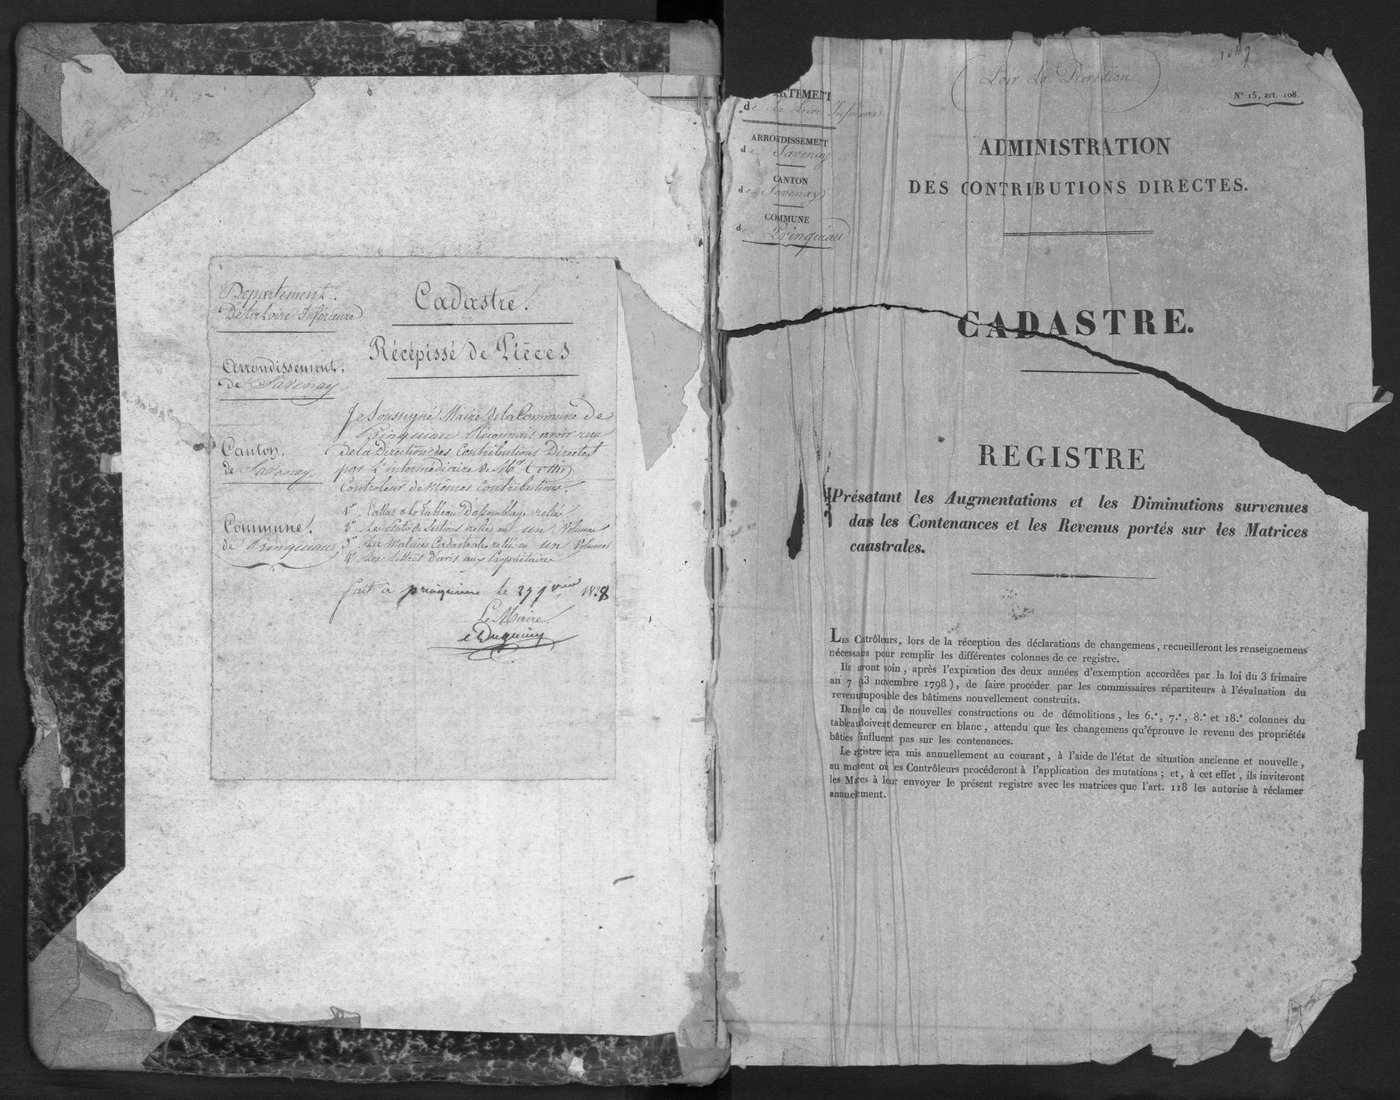 Département
De la Loire Inférieure
Arrondissement
de Savenay
Canton
de Savenay
Commune
de Prinquiau
Cadastre.
Récépissé de Pièces
Je Soussigné Maire de la Commune de
Prinquiau Reconnais avoir reçu
de la Direction des Contributions Directes
par L'intermédiaire de Mr
Controleur de Mêmes Contributions.
1º L'atlas & le tableau D'assemblage relié
2º Les Etats de Sections reliés en un Volume
3º La Matrice Cadastrale reliée en un Volume
4º Les Lettres D'avis aux Propriétaires
fait à prinquiau le 29
Le Maire
DÉPARTEMENT
de La Loire Inférieure
ARRONDISSEMENT
de Savenay
CANTON
de Savenay
COMMUNE
de Prinquiau
Pour La Direction
Nº 15, art. 108.
ADMINISTRATION
DES CONTRIBUTIONS DIRECTES.
CADASTRE.
REGISTRE
Présetant les Augmentations et les Diminutions survenues
das les Contenances et les Revenus portés sur les Matrices
caastrales.
LES Cotrôleurs, lors de la réception des déclarations de changemens, recueilleront les renseignemens
nécessais pour remplir les différentes colonnes de ce registre.
Ils aront soin, après l'expiration des deux années d'exemption accordées par la loi du 3 frimaire
an 7 (13 novembre 1798), de faire procéder par les commissaires répartiteurs à l'évaluation du
revenu imposable des bâtimens nouvellement construits.
Dans le cas de nouvelles constructions ou de démolitions, les 6.e, 7.e, 8.e et 18.e colonnes du
tableau doivent demeurer en blanc, attendu que les changemens qu'éprouve le revenu des propriétés
bâties influent pas sur les contenances.
Le registre sera mis annuellement au courant, à l'aide de l'état de situation ancienne et nouvelle,
au moment où les Contrôleurs procéderont à l'application des mutations; et, à cet effet, ils inviteront
les Maires à leur envoyer le présent registre avec les matrices que l'art. 118 les autorise à réclamer
annuellement.